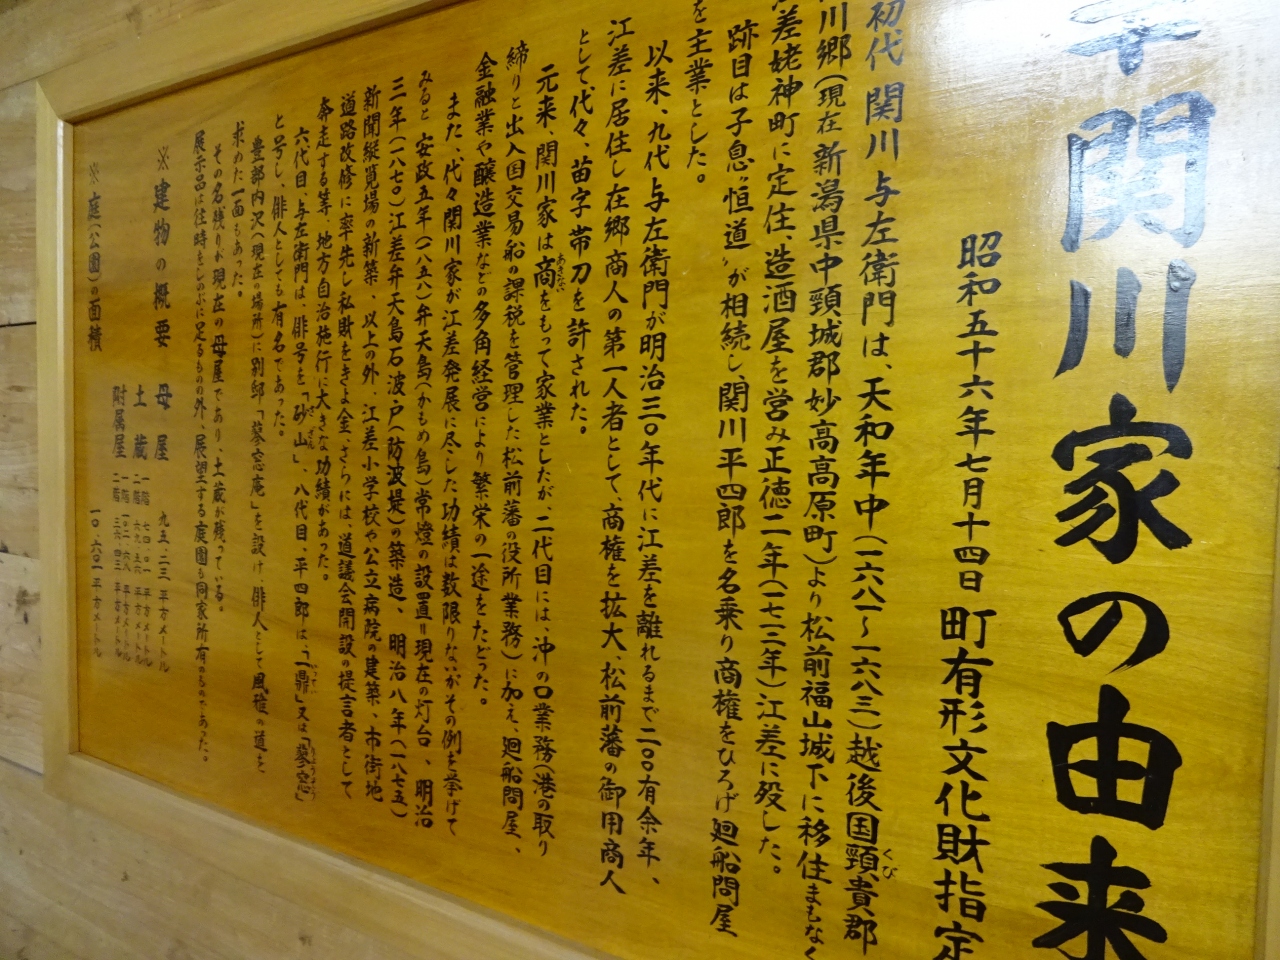 関川家の由来
昭和五十六年七月十四日 町有形文化財指定
初代 関川与左衛門は、天和年中(一六八一〜一六八三)越後国頸貴郡
川郷(現在新潟県中頸城郡妙高高原町)より松前福山城下に移住まもなく
差姥神町に定住、造酒屋を営み正徳二年(一七一二年)江差に歿した。
跡目は子息〝恒道〟が相続し、関川平四郎を名乗り商権をひろげ廻船問屋
を主業とした。
以来、九代 与左衛門が明治三〇年代に江差を離れるまで二〇〇有余年、
江差に居住し在郷商人の第一人者として、商権を拡大、松前藩の御用商人
として代々、苗字帯刀を許された。
元来、関川家は商をもって家業としたが、二代目には、沖の口業務(港の取り
締りと出入国交易船の課税を管理した松前藩の役所業務)に加え、廻船問屋、
金融業や醸造業などの多角経営により 繁栄の一途をたどった。
また、代々関川家が江差発展に尽した功績は数限りないがその例を挙げて
みると 安政五年(一八五八)弁天島(かもめ島)常燈の設置=現在の灯台、明治
三年(一八七〇)江差弁天島石波戸(防波堤)の築造、明治八年(一八七五)
新聞縦覧場の新築、以上の外、江差小学校や公立病院の建築、市街地
道路改修に率先し私財をきょ金、さらには、道議会開設の提言者として
奔走する等、地方自治施行に大きな功績があった。
六代目、与左衛門は、俳号を「砂山」、八代目、平四郎は、「一鼎」又は「蓼窓」
と号し、俳人としても有名であった。
豊部内沢(現在の場所)に別邸「蓼窓庵」を設け、俳人として風雅の道を
求めた一面もあった。
その名残りが現在の母屋であり、土蔵が残っている。
展示品は往時をしのぶに足るものの外、展望する庭園も同家所有のものであった。
※建物の概要 母屋 九五・二三 平方メートル
土蔵 一階 七四・〇一 平方メートル
二階 六九・五六 平方メートル
附属屋 一階 一〇一・六八 平方メートル
二階 三六・四三 平方メートル
※庭(公園)の面積 一〇、六〇一 平方メートル